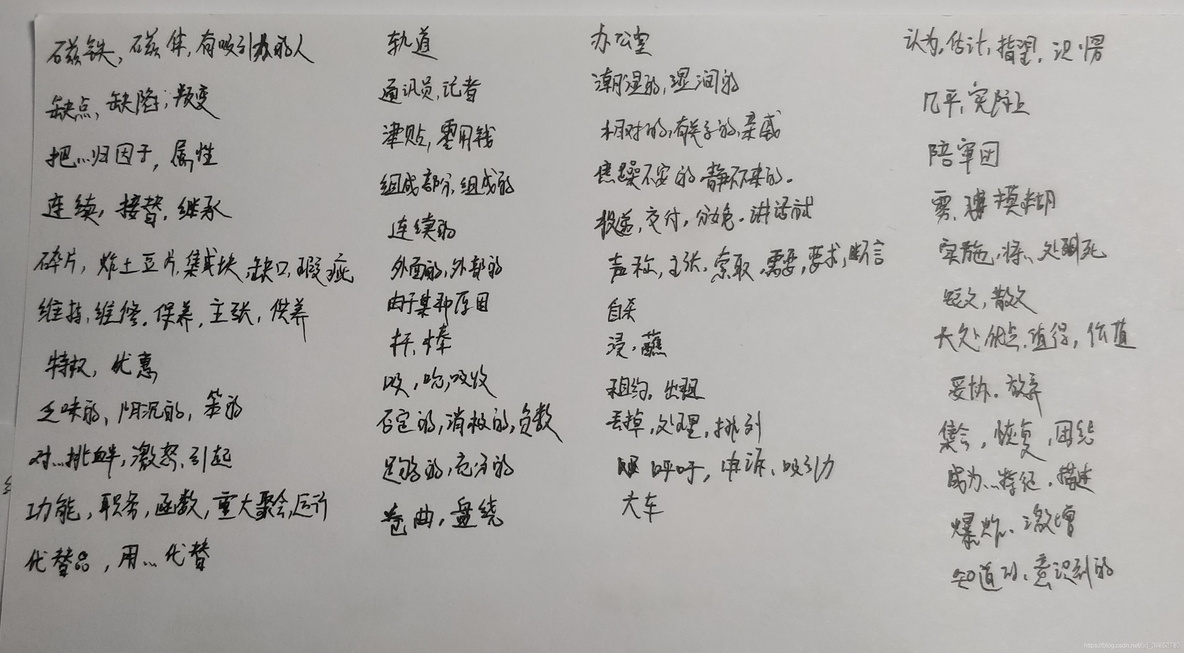 磁铁，磁体，有吸引力的人
缺点，缺陷；叛变
把…归因于，属性
连续，接替，继承
碎片，炸土豆片，集成块，缺口，瑕疵
维持，维修，保养，主张，供养
特权，优惠
乏味的，阴沉的，笨的
对…挑衅，激怒，引起
功能，职务，函数，重大聚会，运行
代替品，用…代替
轨道
通讯员，记者
津贴，零用钱
组成部分，组成的
连续的
外面的，外部的
由于某种原因
杆，棒
吸，吮，吸收
否定的，消极的，负数
足够的，充分的
卷曲，盘绕
办公室
潮湿的，湿润的
相对的，有关系的，亲戚
焦躁不安的，静不下来的．
投递，交付，分娩．讲话
声称，主张，索取，需要，要求，断言
自杀
浸，蘸
租约，出租
丢掉，处理，排列
呼吁，申诉，吸引力
大车
认为，估计，指望，识
几乎，实际上
陪审团
雾，薄，模糊
实施，将…处死
短文，散文
长处，优点，值得，价值
妥协．放弃
集会，恢复，团结
成为…特征．描述
爆炸、激增
知道的、意识到的